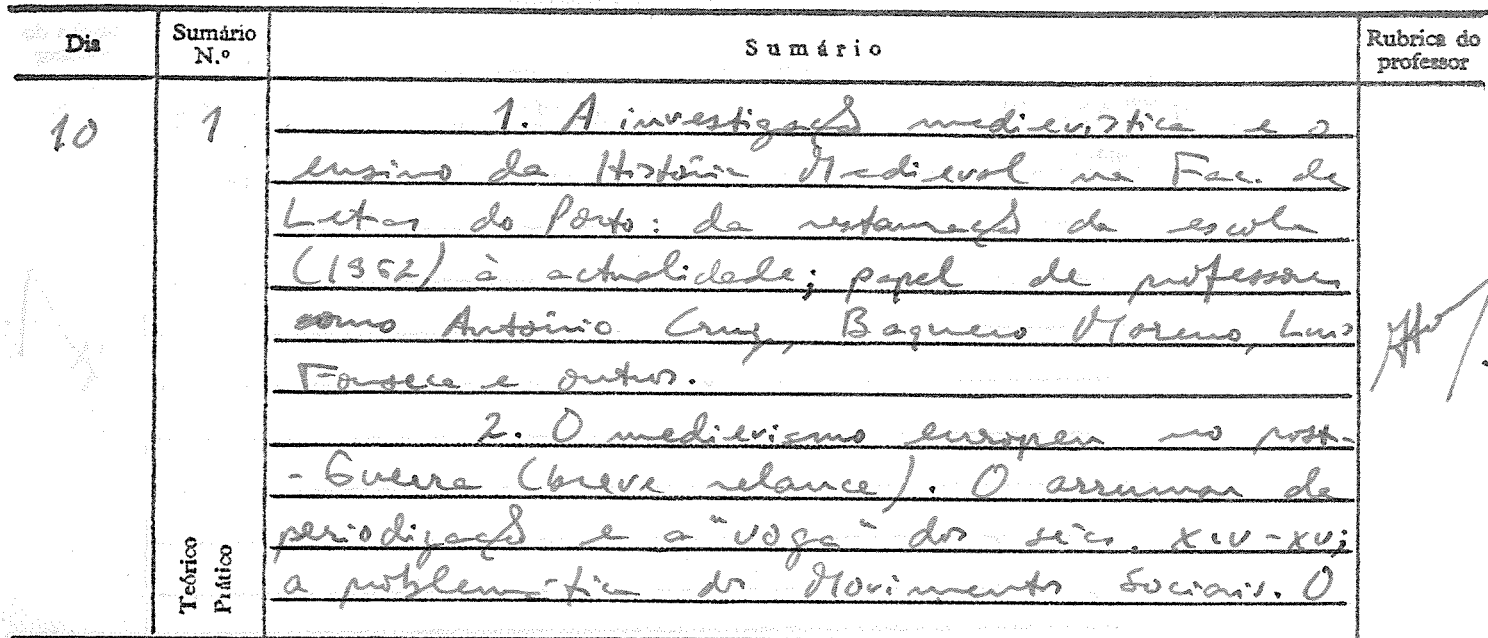 Dia Sumário N.º Sumário Rubrica do professor
10 1 1. A investigação medievística e o
ensino da História Medieval na Fac. de
Letras do Porto: da restauração da escola
(1962) à actualidade; papel de professores
como António Cruz, Baquero Moreno, Luís
Fonseca e outros.
2. O medievismo europeu no post-
-Guerra (breve relance). O arrumar da
periodização e a "voga" dos sécs. XIV-XV;
a problemática dos Movimentos Sociais. O
Teórico
Prático